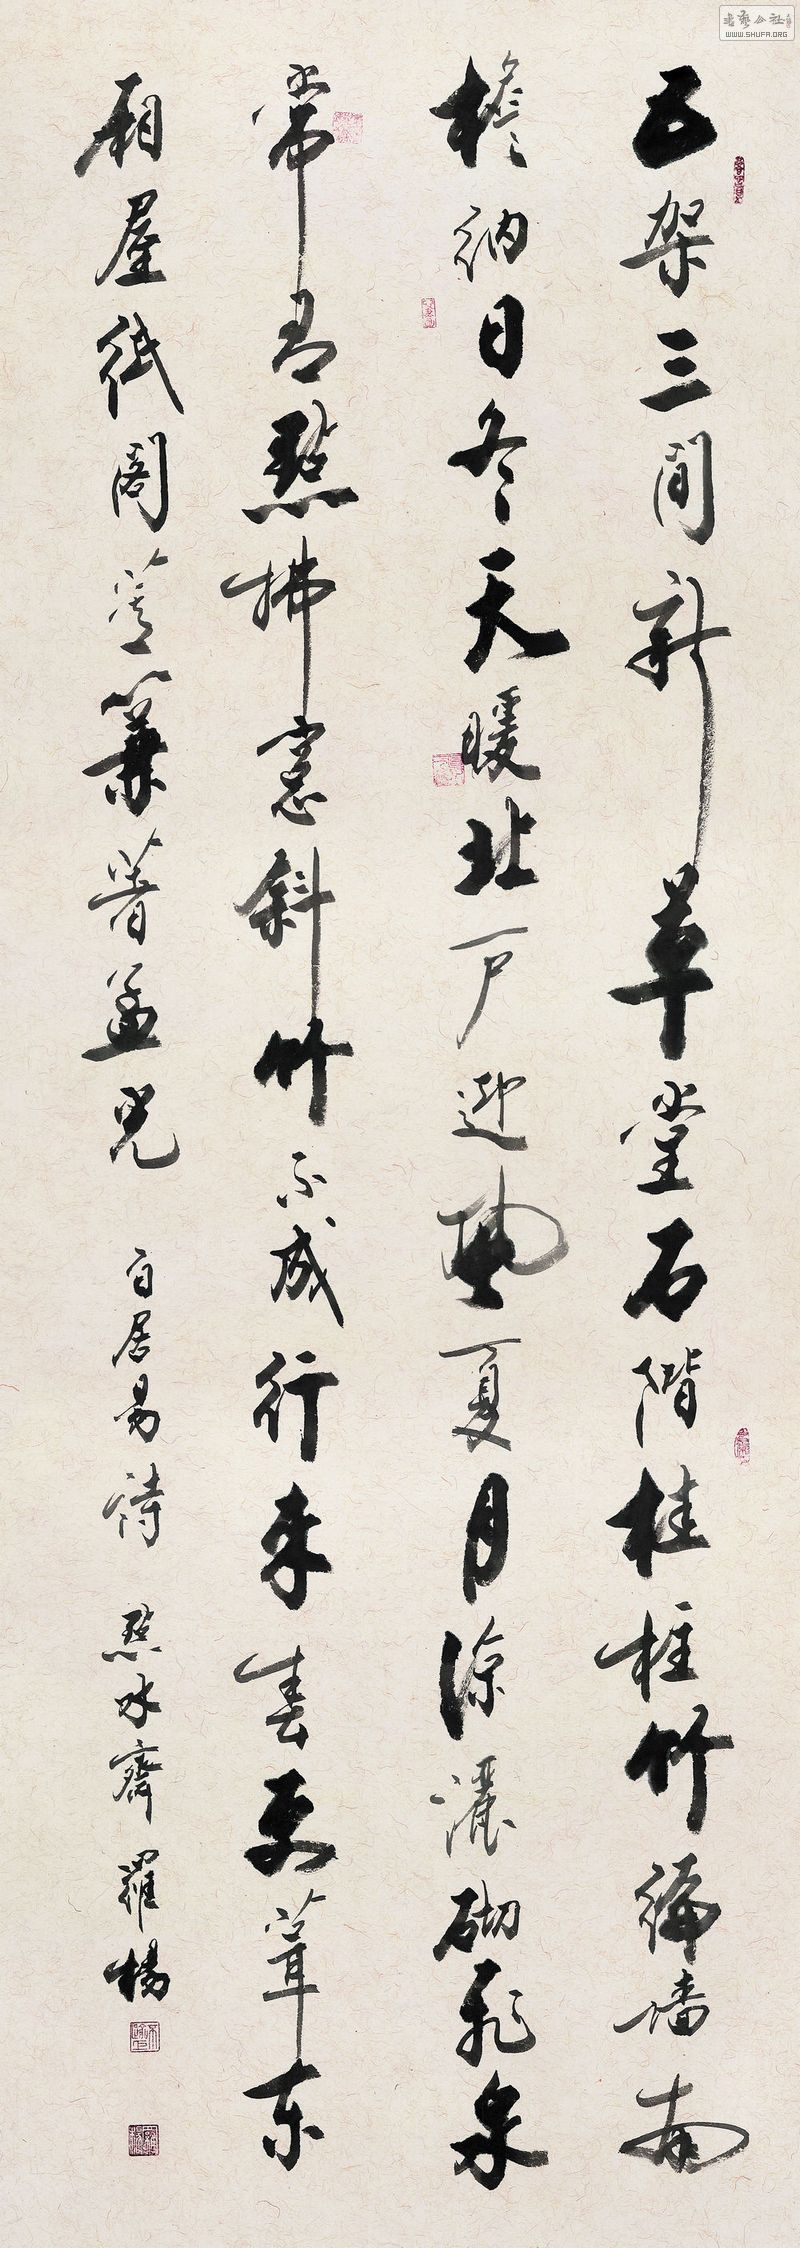 五架三间新草堂石階桂柱竹编墙南
檐纳日冬天暖北户迎風夏月凉灑砌飛泉
常有點拂窗斜竹不成行来春更葺東
廂屋纸阁蘆簾著孟光
白居易诗 點冰齋羅楊
书艺公社
WWW.SHUFA.ORG